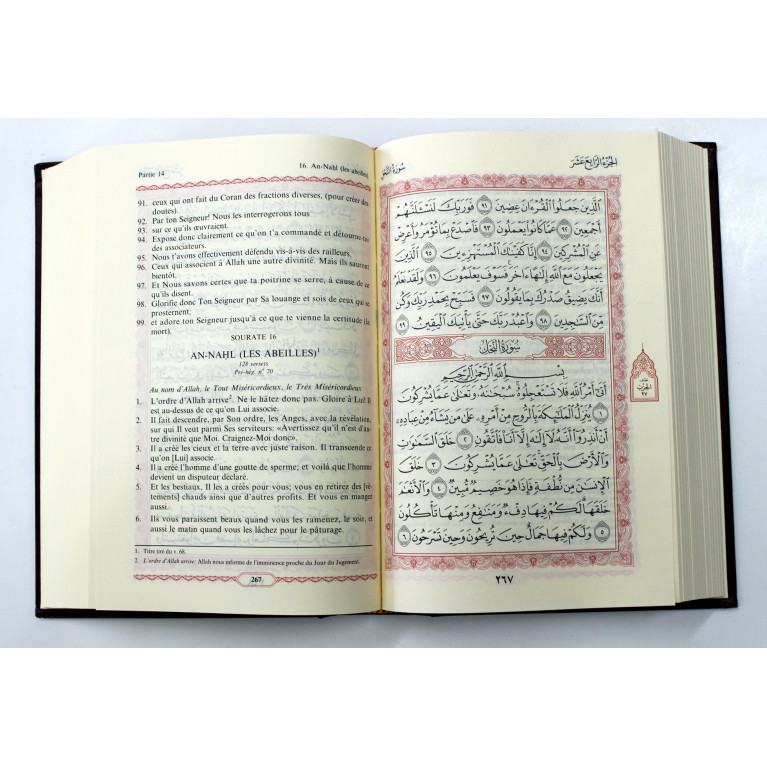 Partie 14
16. An-Naḥl (les abeilles)
91. ceux qui ont fait du Coran des fractions diverses, (pour créer des
doutes).
92. Par ton Seigneur! Nous les interrogerons tous
93. sur ce qu'ils œuvraient.
94. Expose donc clairement ce qu'on t'a commandé et détourne-toi
des associateurs.
95. Nous t'avons effectivement défendu vis-à-vis des railleurs,
96. Ceux qui associent à Allah une autre divinité. Mais ils sauront
bientôt.
97. Et Nous savons certes que ta poitrine se serre, à cause de ce
qu'ils disent.
98. Glorifie donc Ton Seigneur par Sa louange et sois de ceux qui se
prosternent;
99. et adore ton Seigneur jusqu'à ce que te vienne la certitude (la
mort).
SOURATE 16
AN-NAḤL (LES ABEILLES)¹
128 versets
Pré-hég. n° 70
Au nom d'Allah, le Tout Miséricordieux, le Très Miséricordieux
1. L'ordre d'Allah arrive². Ne le hâtez donc pas. Gloire à Lui! Il
est au-dessus de ce qu'on Lui associe.
2. Il fait descendre, par Son ordre, les Anges, avec la révélation,
sur qui Il veut parmi Ses serviteurs: «Avertissez qu'il n'est d'au-
tre divinité que Moi. Craignez-Moi donc».
3. Il a créé les cieux et la terre avec juste raison. Il transcende ce
qu'on [Lui] associe.
4. Il a créé l'homme d'une goutte de sperme; et voilà que l'homme
devient un disputeur déclaré.
5. Et les bestiaux, Il les a créés pour vous; vous en retirez des [vê-
tements] chauds ainsi que d'autres profits. Et vous en mangez
aussi.
6. Ils vous paraissent beaux quand vous les ramenez, le soir, et
aussi le matin quand vous les lâchez pour le pâturage.
1. Titre tiré du v. 68.
2. L'ordre d'Allah arrive: Allah nous informe de l'imminence proche du Jour du Jugement.
267
الجزء الرابع عشر
سورة النحل
ٱلَّذِينَ جَعَلُوا۟ ٱلْقُرْءَانَ عِضِينَ ٩١ فَوَرَبِّكَ لَنَسْـَٔلَنَّهُمْ
أَجْمَعِينَ ٩٢ عَمَّا كَانُوا۟ يَعْمَلُونَ ٩٣ فَٱصْدَعْ بِمَا تُؤْمَرُ وَأَعْرِضْ
عَنِ ٱلْمُشْرِكِينَ ٩٤ إِنَّا كَفَيْنَٰكَ ٱلْمُسْتَهْزِءِينَ ٩٥ ٱلَّذِينَ
يَجْعَلُونَ مَعَ ٱللَّهِ إِلَٰهًا ءَاخَرَ فَسَوْفَ يَعْلَمُونَ ٩٦ وَلَقَدْ نَعْلَمُ
أَنَّكَ يَضِيقُ صَدْرُكَ بِمَا يَقُولُونَ ٩٧ فَسَبِّحْ بِحَمْدِ رَبِّكَ وَكُن
مِّنَ ٱلسَّٰجِدِينَ ٩٨ وَٱعْبُدْ رَبَّكَ حَتَّىٰ يَأْتِيَكَ ٱلْيَقِينُ ٩٩
سورة النحل
بِسْمِ ٱللَّهِ ٱلرَّحْمَٰنِ ٱلرَّحِيمِ
أَتَىٰٓ أَمْرُ ٱللَّهِ فَلَا تَسْتَعْجِلُوهُ سُبْحَٰنَهُۥ وَتَعَٰلَىٰ عَمَّا يُشْرِكُونَ
١ يُنَزِّلُ ٱلْمَلَٰٓئِكَةَ بِٱلرُّوحِ مِنْ أَمْرِهِۦ عَلَىٰ مَن يَشَآءُ مِنْ عِبَادِهِۦٓ
أَنْ أَنذِرُوٓا۟ أَنَّهُۥ لَآ إِلَٰهَ إِلَّآ أَنَا۠ فَٱتَّقُونِ ٢ خَلَقَ ٱلسَّمَٰوَٰتِ
وَٱلْأَرْضَ بِٱلْحَقِّ تَعَٰلَىٰ عَمَّا يُشْرِكُونَ ٣ خَلَقَ
ٱلْإِنسَٰنَ مِن نُّطْفَةٍ فَإِذَا هُوَ خَصِيمٌ مُّبِينٌ ٤ وَٱلْأَنْعَٰمَ
خَلَقَهَا لَكُمْ فِيهَا دِفْءٌ وَمَنَٰفِعُ وَمِنْهَا تَأْكُلُونَ
٥ وَلَكُمْ فِيهَا جَمَالٌ حِينَ تُرِيحُونَ وَحِينَ تَسْرَحُونَ ٦
الحزب
٢٧
٢٦٧